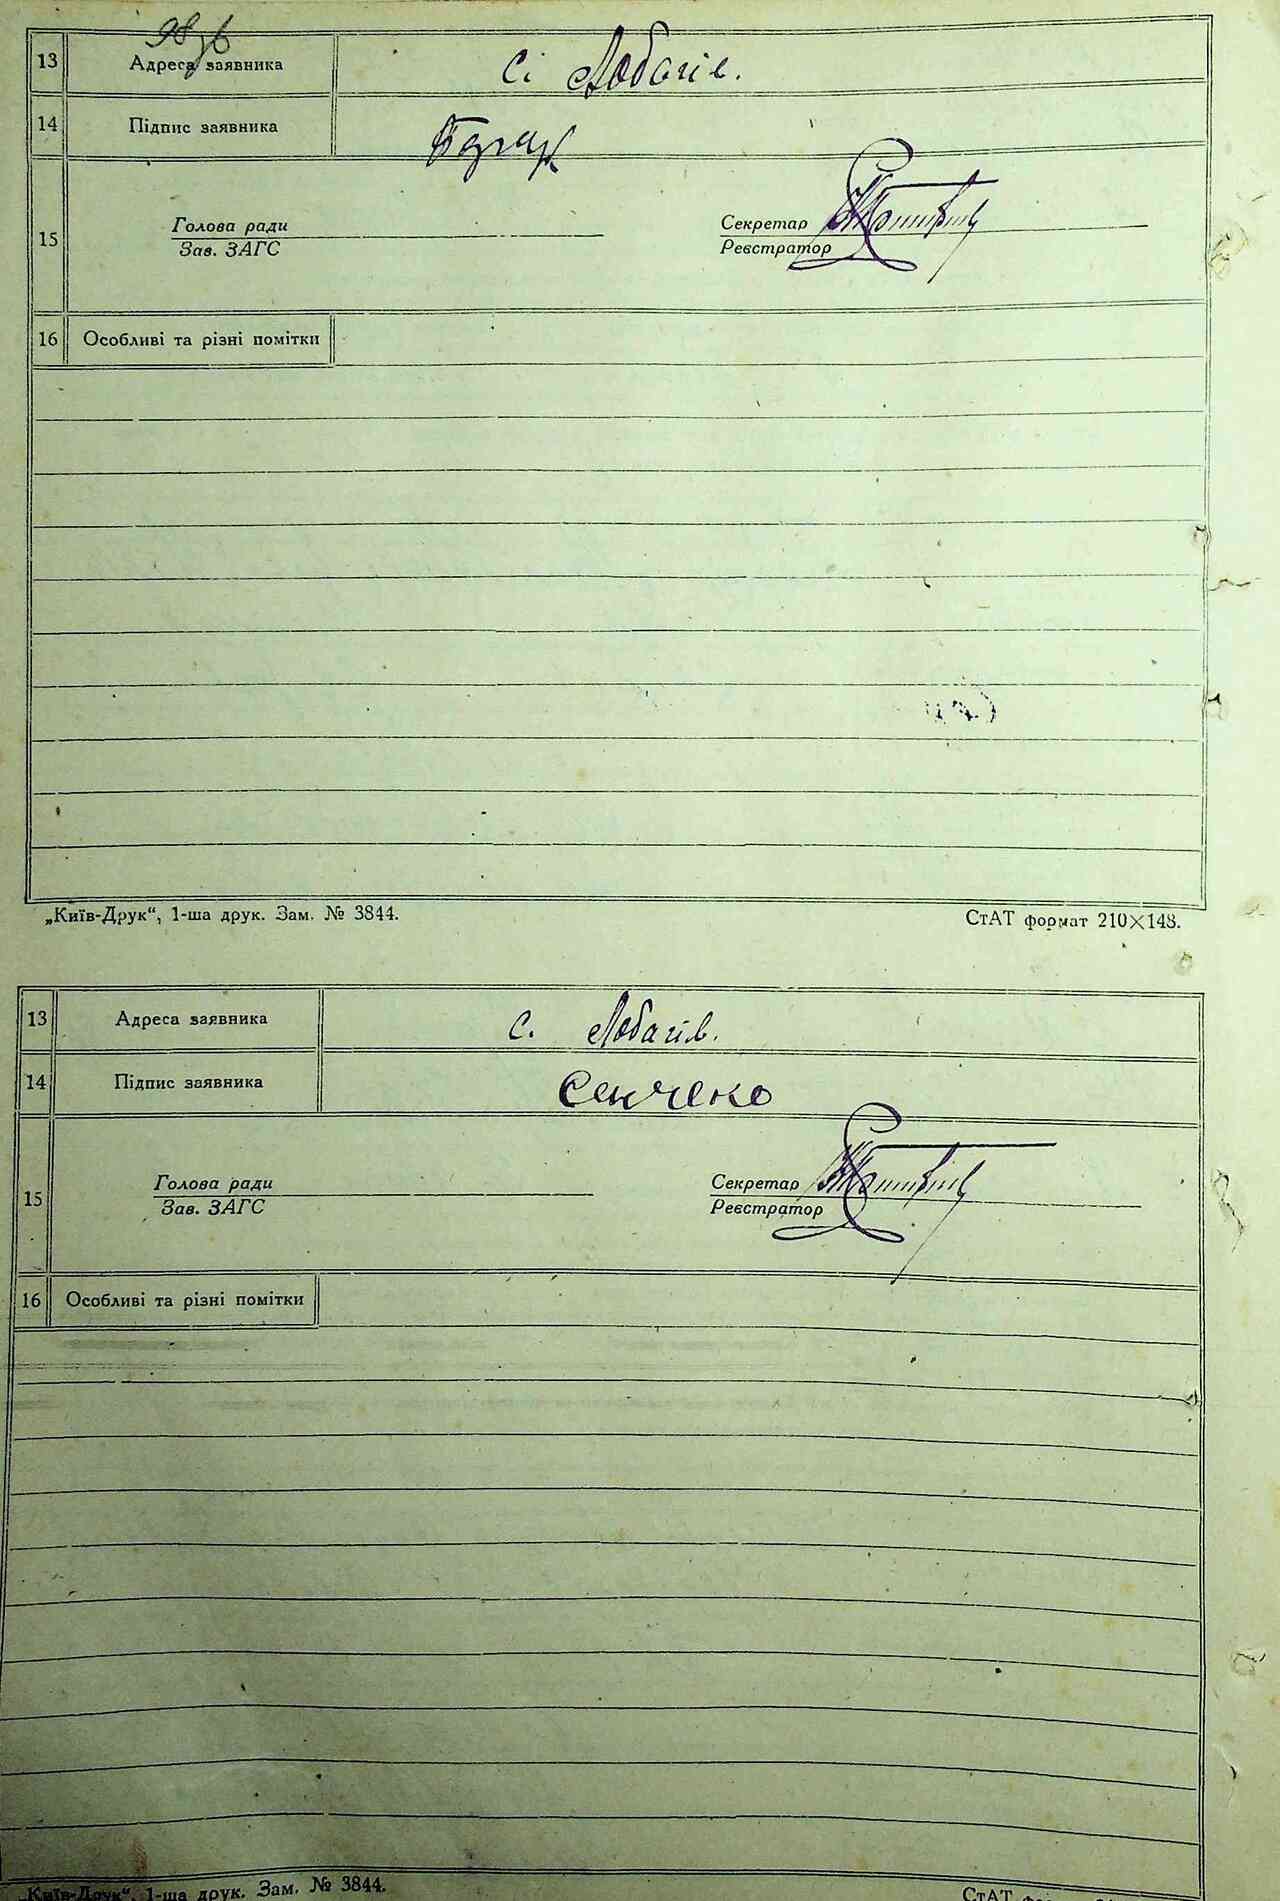 98зв
13 Адреса заявника Сі Лобачів.
14 Підпис заявника
Голова ради Секретар
15
Зав. ЗАГС Реєстратор
16 Особливі та різні помітки
„Київ-Друк“, 1-ша друк. Зам. № 3844. СтАТ формат 210×148.
13 Адреса заявника с. Лобачів.
14 Підпис заявника Сенчеко
Голова ради Секретар
15
Зав. ЗАГС Реєстратор
16 Особливі та різні помітки
„Київ-Друк“, 1-ша друк. Зам. № 3844. СтАТ